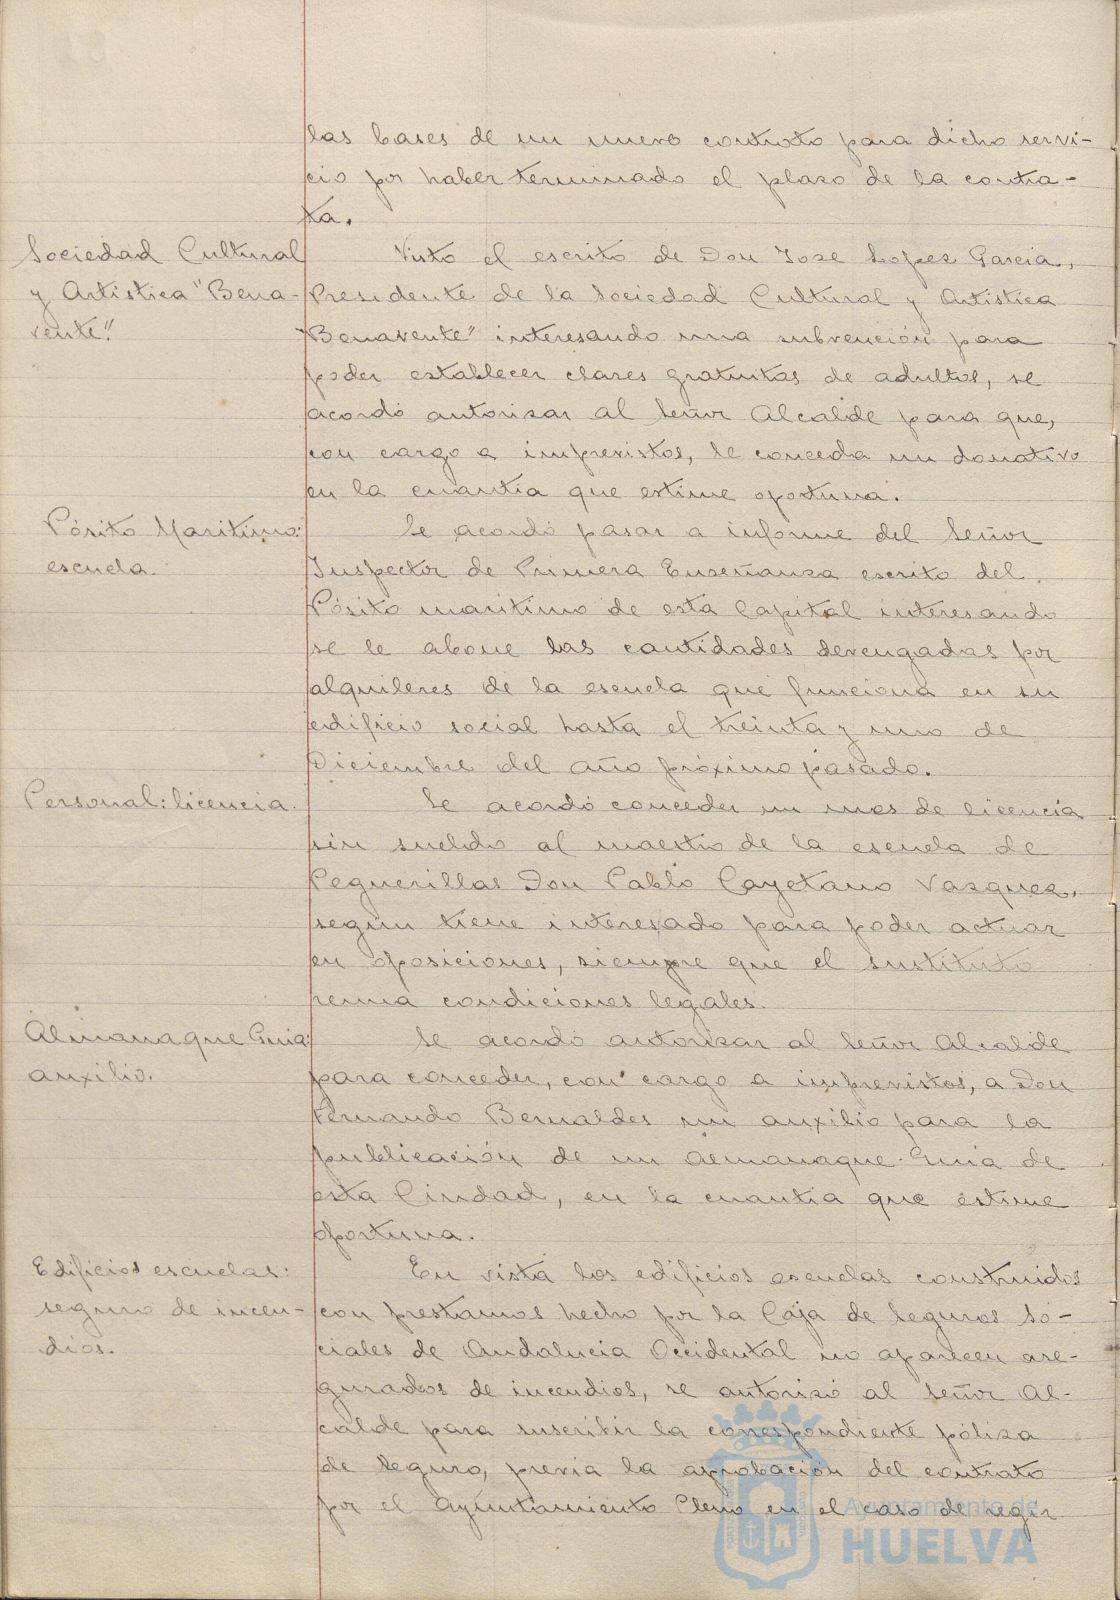 las bases de un nuevo contrato para dicho servi-
cio por haber terminado el plazo de la contra-
ta.
Sociedad Cultural
y Artistica "Bena-
vente".
Visto el escrito de Don Jose Lopez Garcia,
Presidente de la Sociedad Cultural y Artistica
"Benavente" interesando una subvención para
poder establecer clases gratuitas de adultos, se
acordó autorizar al Señor Alcalde para que,
con cargo a imprevistos, le conceda un donativo
en la cuantia que estime oportuna.
Pósito Maritimo:
escuela.
Se acordó pasar a informe del Señor
Inspector de Primera Enseñanza escrito del
Pósito maritimo de esta Capital interesando
se le abone las cantidades devengadas por
alquileres de la escuela que funciona en su
edificio social hasta el treinta y uno de
Diciembre del año próximo pasado.
Personal: licencia.
Se acordó conceder un mes de licencia
sin sueldo al maestro de la escuela de
Peguerillas Don Pablo Cayetano Vazquez,
según tiene interesado para poder actuar
en oposiciones, siempre que el sustituto
reuna condiciones legales.
Almanaque Guia:
auxilio.
Se acordó autorizar al Señor Alcalde
para conceder, con cargo a imprevistos, a Don
Fernando Bernaldes un auxilio para la
publicación de un Almanaque-Guia de
esta Ciudad, en la cuantia que estime
oportuna.
Edificios escuelas:
seguro de incen-
dios.
En vista los edificios escuelas construidos
con prestamos hecho por la Caja de Seguros So-
ciales de Andalucia Occidental no aparecen ase-
gurados de incendios, se autorizó al Señor Al-
calde para suscribir la correspondiente póliza
de Seguro, previa la aprobación del contrato
por el Ayuntamiento Pleno en el caso de reger
Ayuntamiento de
HUELVA